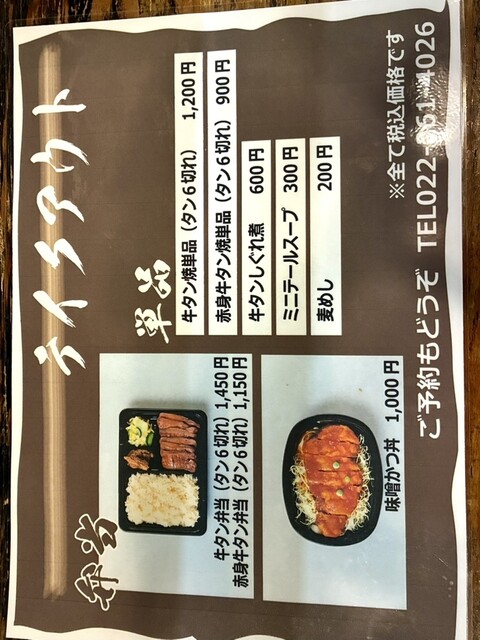 テイクアウト
弁当
牛タン弁当（タン６切れ）1,450円
赤身牛タン弁当（タン６切れ）1,150円
味噌かつ丼 1,000円
単品
牛タン焼単品（タン６切れ） 1,200円
赤身牛タン焼単品（タン６切れ） 900円
牛タンしぐれ煮 600円
ミニテールスープ 300円
麦めし 200円
※全て税込価格です
ご予約もどうぞ